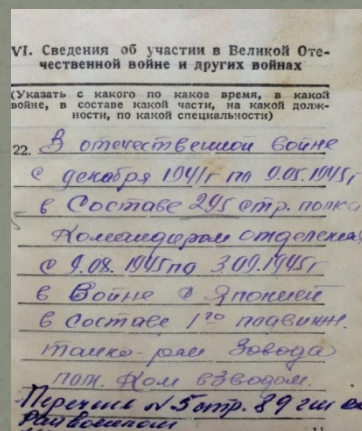 VI. Сведения об участии в Великой Оте-
чественной войне и других войнах
(Указать с какого по какое время, в какой
войне, в составе какой части, на какой долж-
ности, по какой специальности)
22. В отечественной войне
с декабря 1941г по 9.05.1945г
в Составе 295 стр. полка
Командиром отделения
с 9.08. 1945 по 3.09.1945г
в Войне с Японией
в составе 1го подвижн.
танко-рем Завода
пом. Ком взводом.
Перечень №5 стр. 89